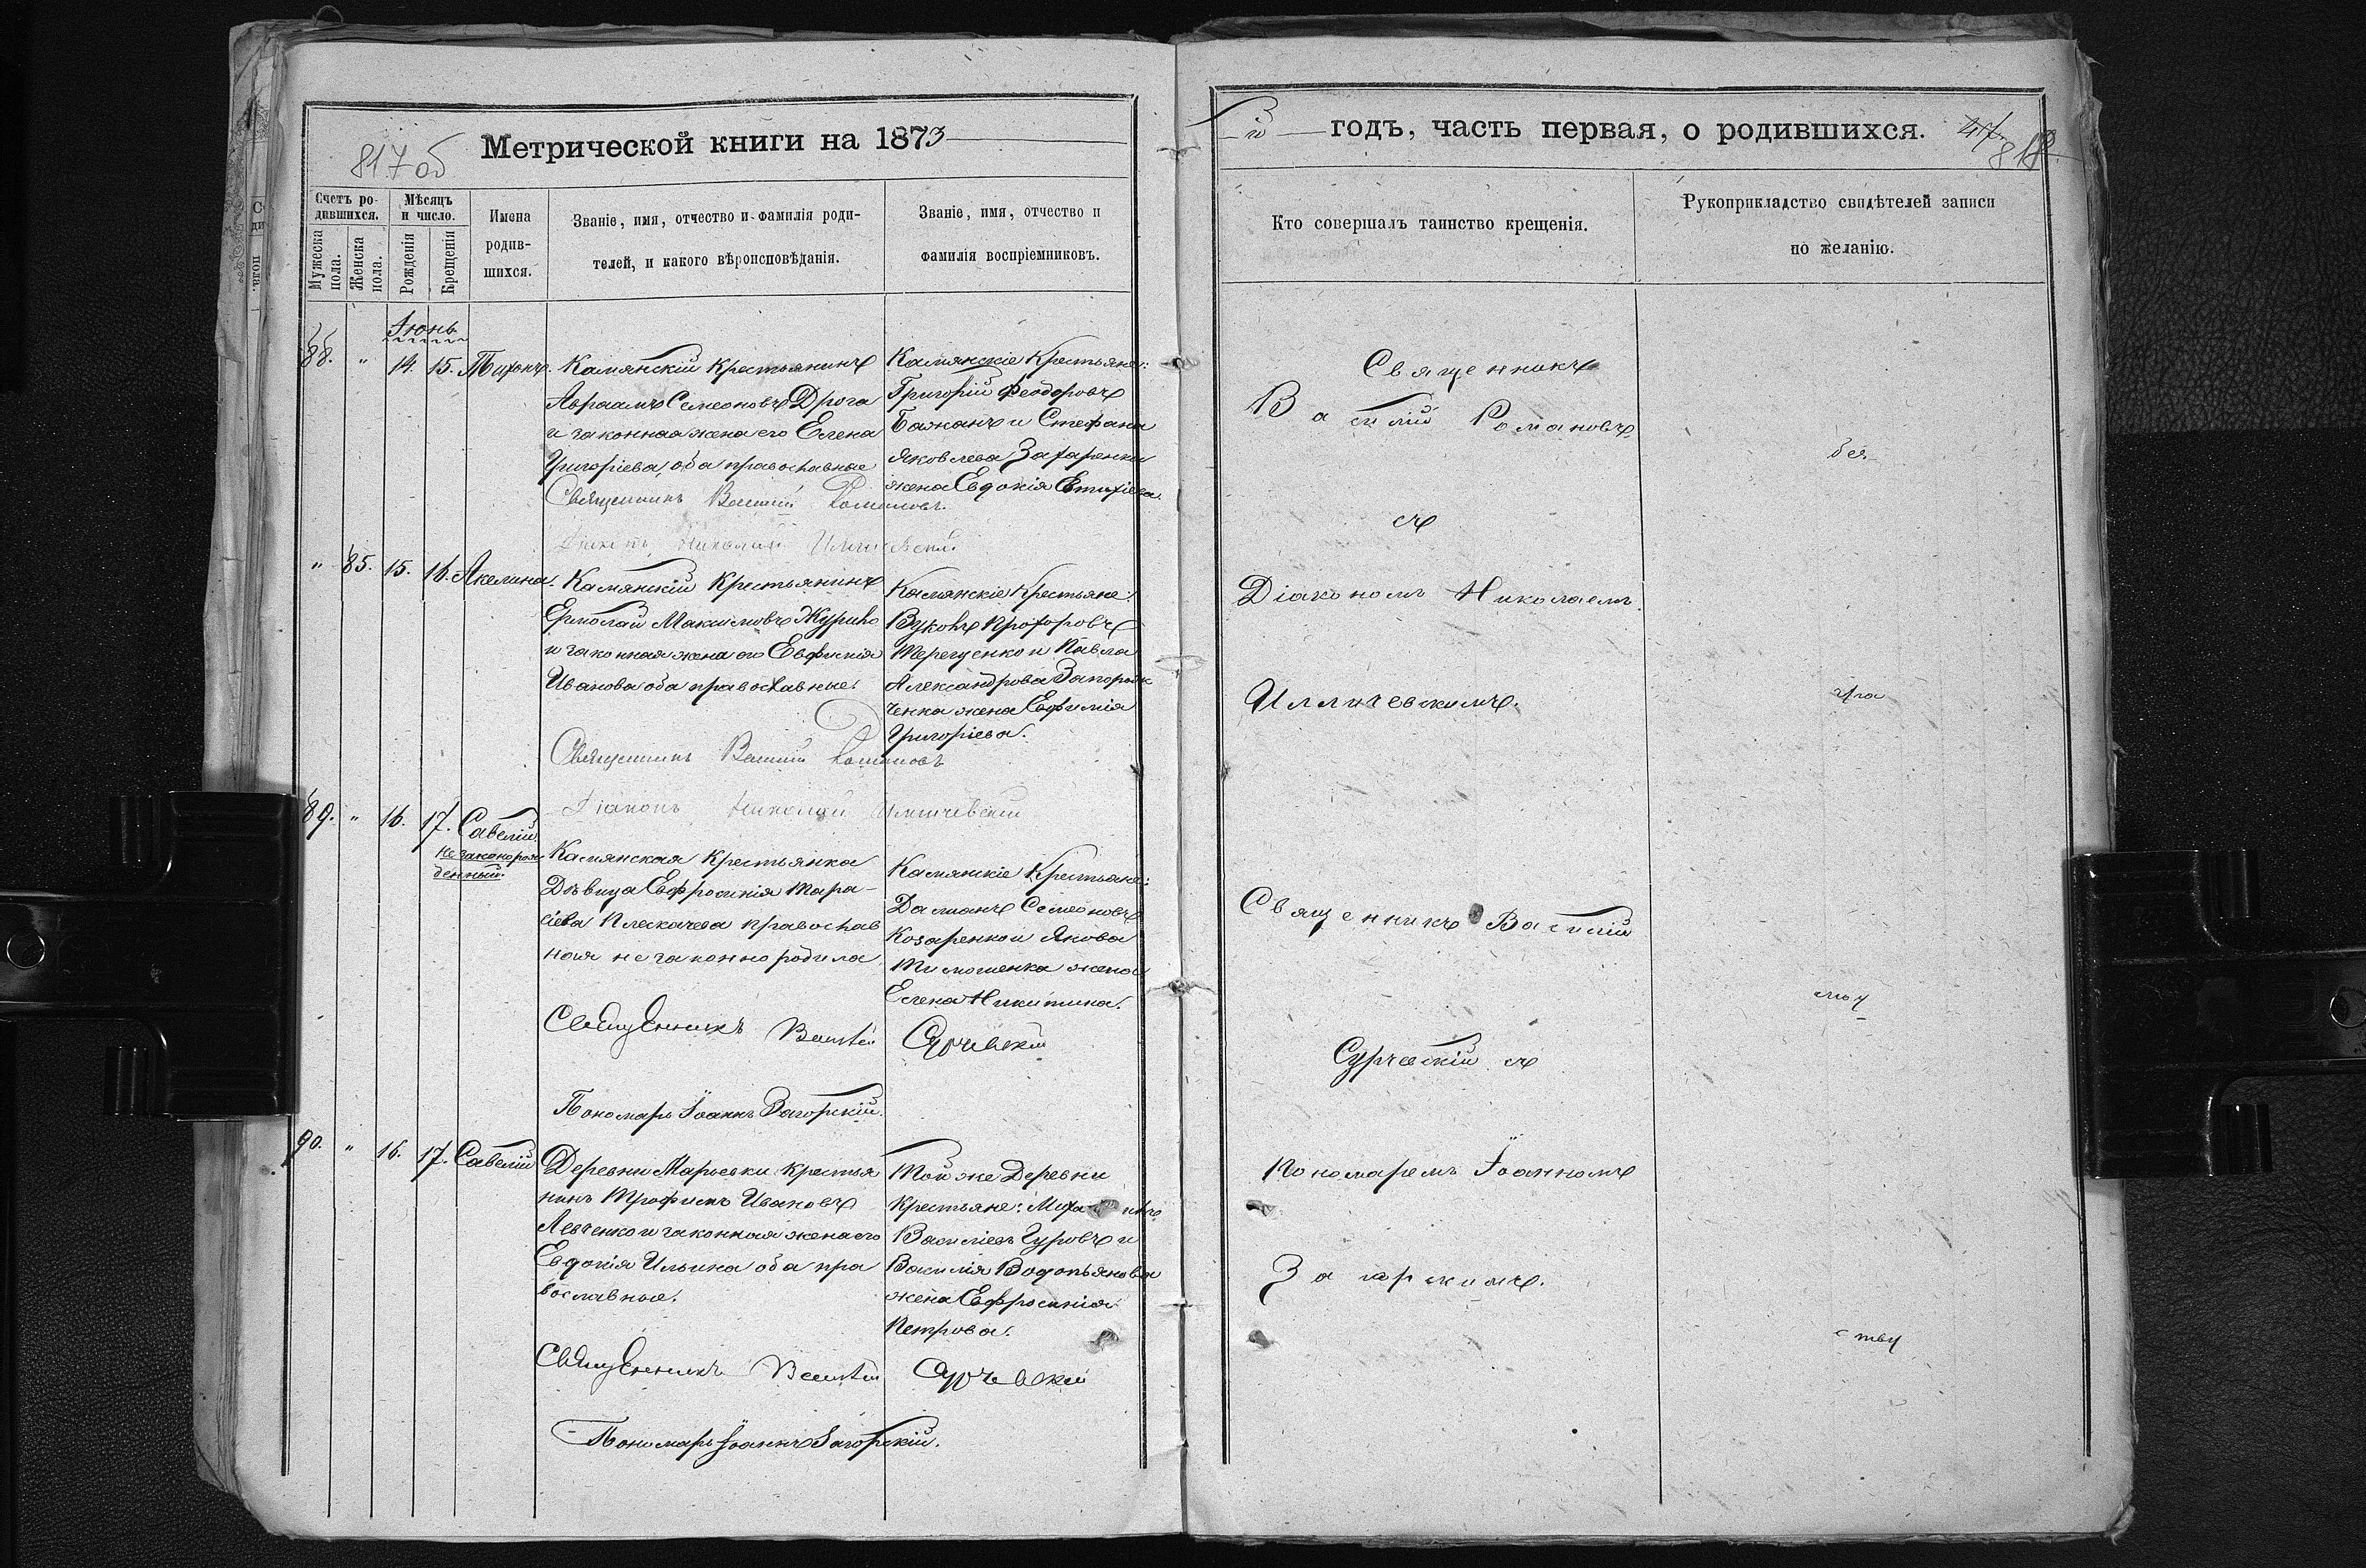 817 об
Метрической книги на 1873
Счетъ ро-
дившихся.
Мѣсяцъ
и число.
Мужеска
пола.
Женска
пола.
Рожденія
Крещенія
Имена
родив-
шихся.
Званіе, имя, отчество и фамилія роди-
телей, и какого вѣроисповѣданія.
Званіе, имя, отчество и
фамилія воспріемниковъ.
Іюнь
88. " 14. 15. Тихонъ.
Камянскій Крестьянинъ
Авраамъ Семеоновъ Дрога
и законная жена его Елена
Григоріева, оба православные
Священникъ Василій Романовъ.
Діаконъ Николай Илличевскій
Камянскіе Крестьяне:
Григорій Феодоровъ
Бажанъ и Стефана
Яковлева Захаренки
жена Евдокія Евтихіева.
" 85. 15. 16. Акелина.
Камянскій Крестьянинъ
Ермолай Максимовъ
и законная жена его Евфимія
Иванова оба православные.
Священникъ Василій Романовъ
Діаконъ Николай Илличевскій
Камянскіе Крестьяне:
Вуколъ Прохоровъ
Терещенко и Павла
Александрова
ченка жена Евфимія
Григоріева.
89. " 16. 17. Савелій.
незаконорож
денный.
Камянская Крестьянка
Дѣвица Евфросинія Тара-
сіева Плескачева православ
ная незаконно родила
Священникъ Василій Сурчевскій
Пономарь Іоаннъ Загорскій.
Камянскіе Крестьяне:
Даміанъ Семеоновъ
Козаренко и Якова
Тимошенка жена
Елена Никитина.
90. " 16. 17. Савелій
Деревни Марьевки Крестья
нинъ Трофимъ Ивановъ
Левченко и законная жена его
Евдокія Ильина оба пра
вославные.
Священникъ Василій Сурчевскій
Пономарь Іоаннъ Загорскій.
Той же Деревни
Крестьяне:
Василіевъ Гуровъ и
Василія Водопьянова
жена Евфросинія
Петрова.
й годъ, часть первая, о родившихся.
47
818
Кто совершалъ таинство крещенія.
Рукоприкладство свидѣтелей записи
по желанію.
Священникъ
Василій Романовъ
съ
Діакономъ Николаемъ
Илличевскимъ.
Священникъ Василій
Сурчевскій съ
Пономаремъ Іоанномъ
Загорскимъ.